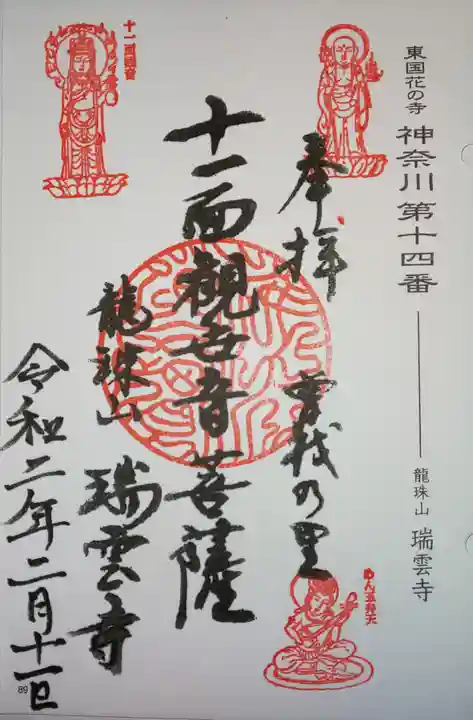 東国花の寺 神奈川第十四番 龍珠山 瑞雲寺
奉拝 曽我の里
十一面観世音菩薩
龍珠山 瑞雲寺
令和二年二月十一日
十一面観音
めん玉弁天
89